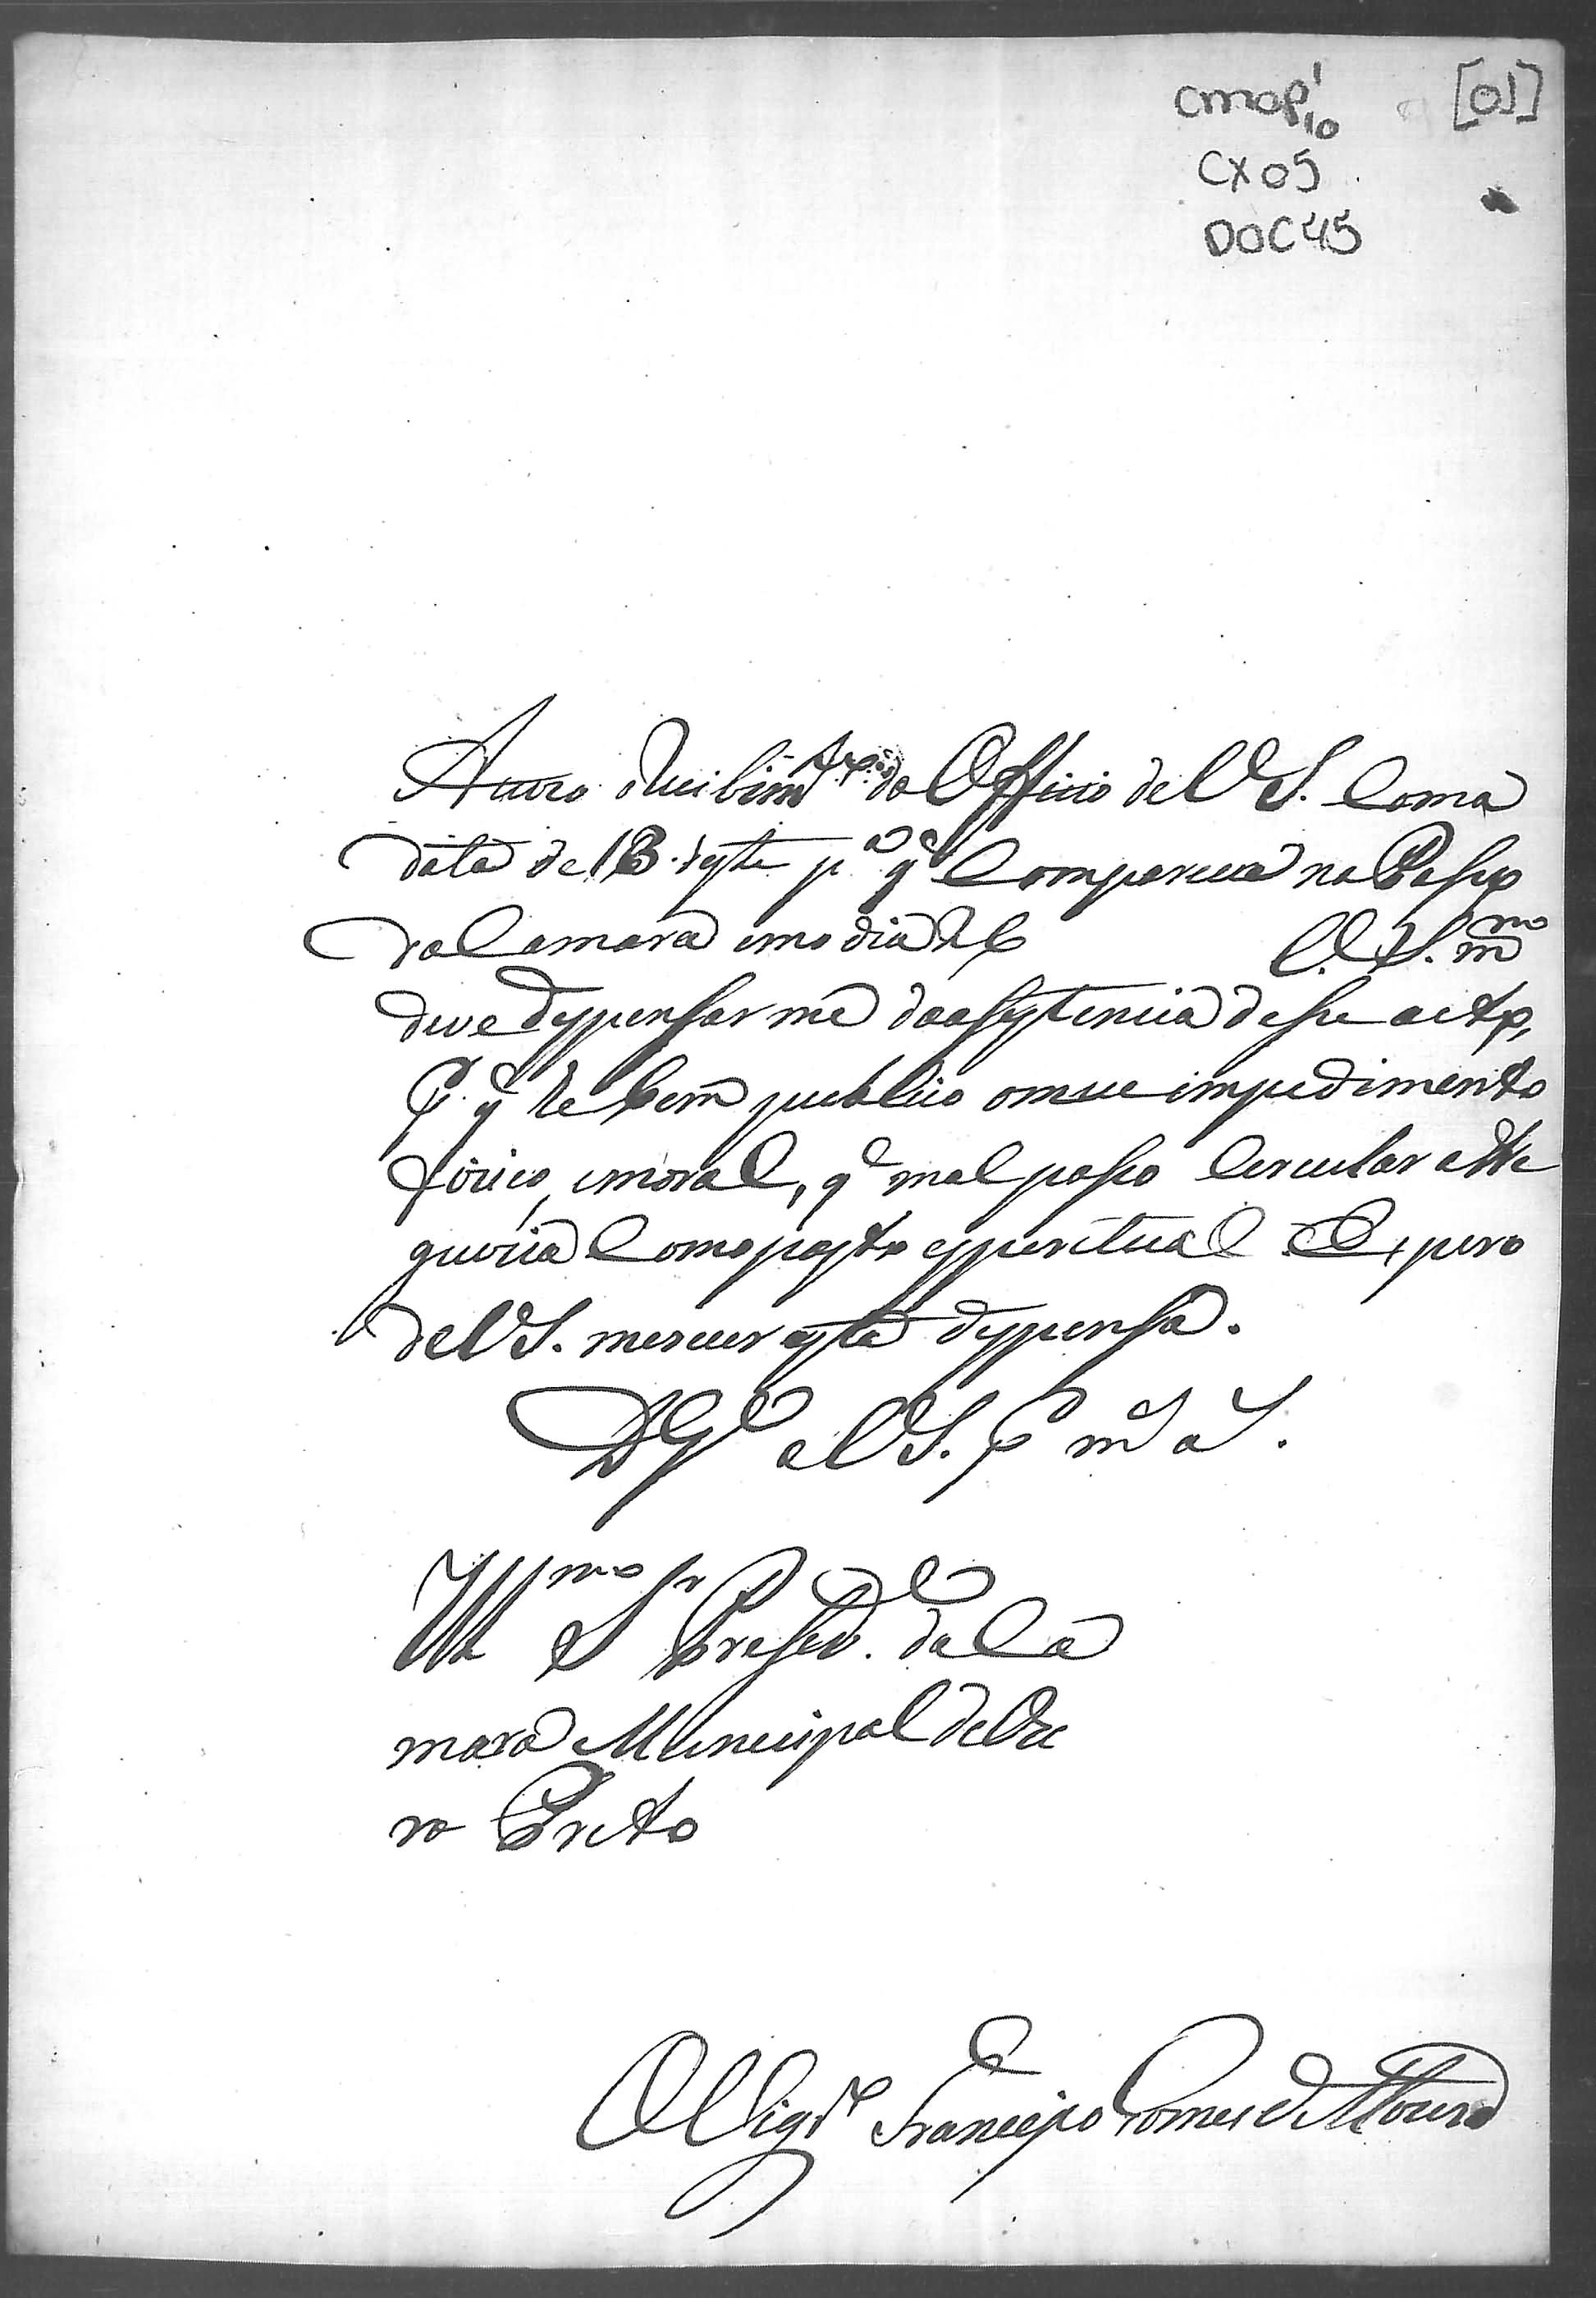 CMOP 1/10 [01]
CX 05
DOC 45
Acuzo o Recibimto do Officio de VS. Com a
data de 13 deste pa qe Compareça no Passo
da Camara em o dia
V. S.mo
deve despensar me da asestencia desse acto,
P. qe he bem publico o meu impedimento
fizico, e moral, qe mal posso Circular a
guezia Como pasto esperitual Espero
de VS. merecer esta despensa.
DGe a VS. P ms as.
Illmo Sr Presede da Ca
mara Municipal de Ou
ro Preto
Francisco Gomes de Moura